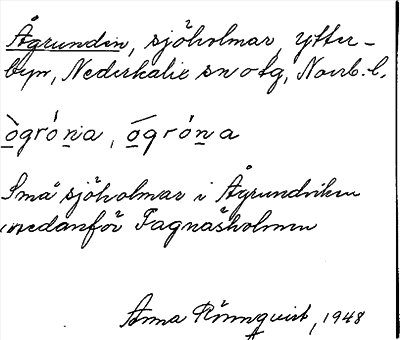 Ågrunden, sjöholmar, Ytter-
byn, Nederkalix sn o tg, Norrb. l.
ògróṉa, ógróṉa
Små sjöholmar i Ågrundviken
nedanför Fagnäsholmen
Anna Rönnqvist, 1948